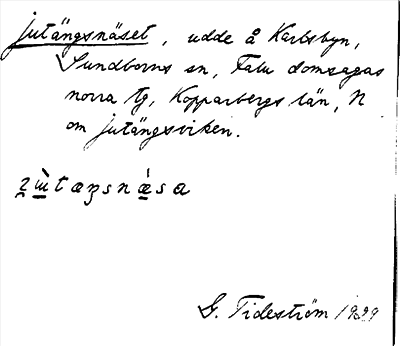 jutängsnäset, udde å Karlsbyn,
Sundborns sn, Falu domsagas
norra tg, Kopparbergs län, N
om jutängsviken.
G. Tideström 1929